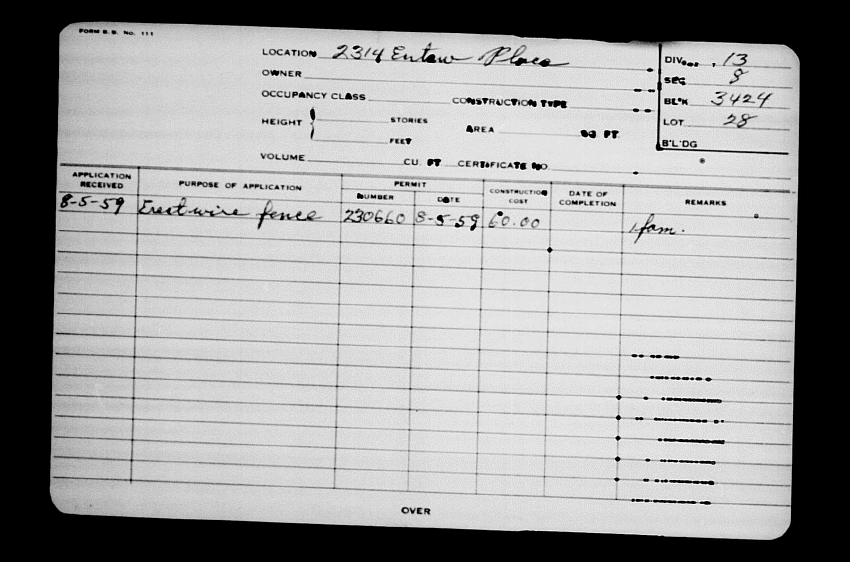 FORM B.B. No. 111
LOCATION 2314 Eutaw Place
DIV. 13
OWNER
SEC 8
OCCUPANCY CLASS CONSTRUCTION TYPE
BL'K 3424
HEIGHT STORIES AREA SQ FT.
LOT 28
FEET
B'L'DG
VOLUME CU. FT. CERTIFICATE NO.
APPLICATION RECEIVED PURPOSE OF APPLICATION PERMIT NUMBER DATE CONSTRUCTION COST DATE OF COMPLETION REMARKS
8-5-59 Erect wire fence 230660 8-5-59 60.00 1 fam.
OVER